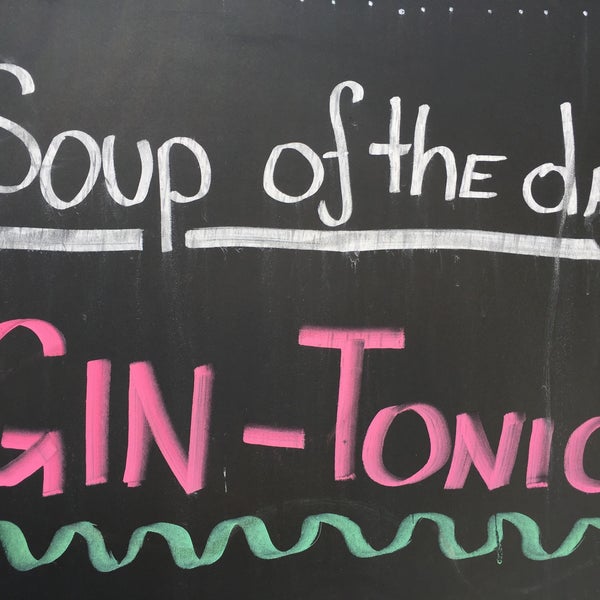 Soup of the da
GIN-TONIC